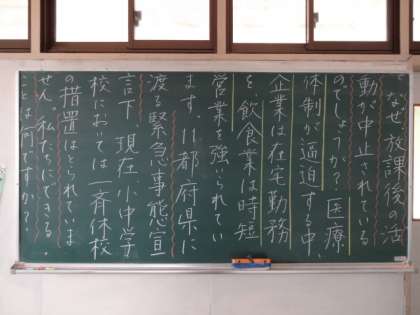 なぜ、放課後の活
動が中止されている
のでしょうか? 医療
体制が逼迫する中、
企業は在宅勤務
を、飲食業は時短
営業を強いられてい
ます。11都府県に
渡る緊急事態宣
言下、現在小中学
校においては一斉休校
の措置はとられていま
せん。私たちにできる・
ことは何ですか?